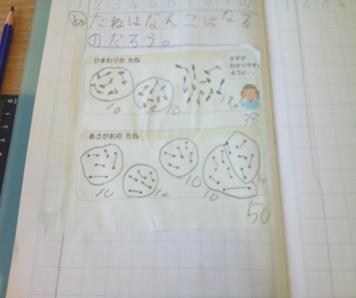 め たねはなんこになる
のだろう。
ひまわりの たね
かずが
わかりやすい
ように…
10
10
38
あさがおの たね
10
10
10
10
10
50